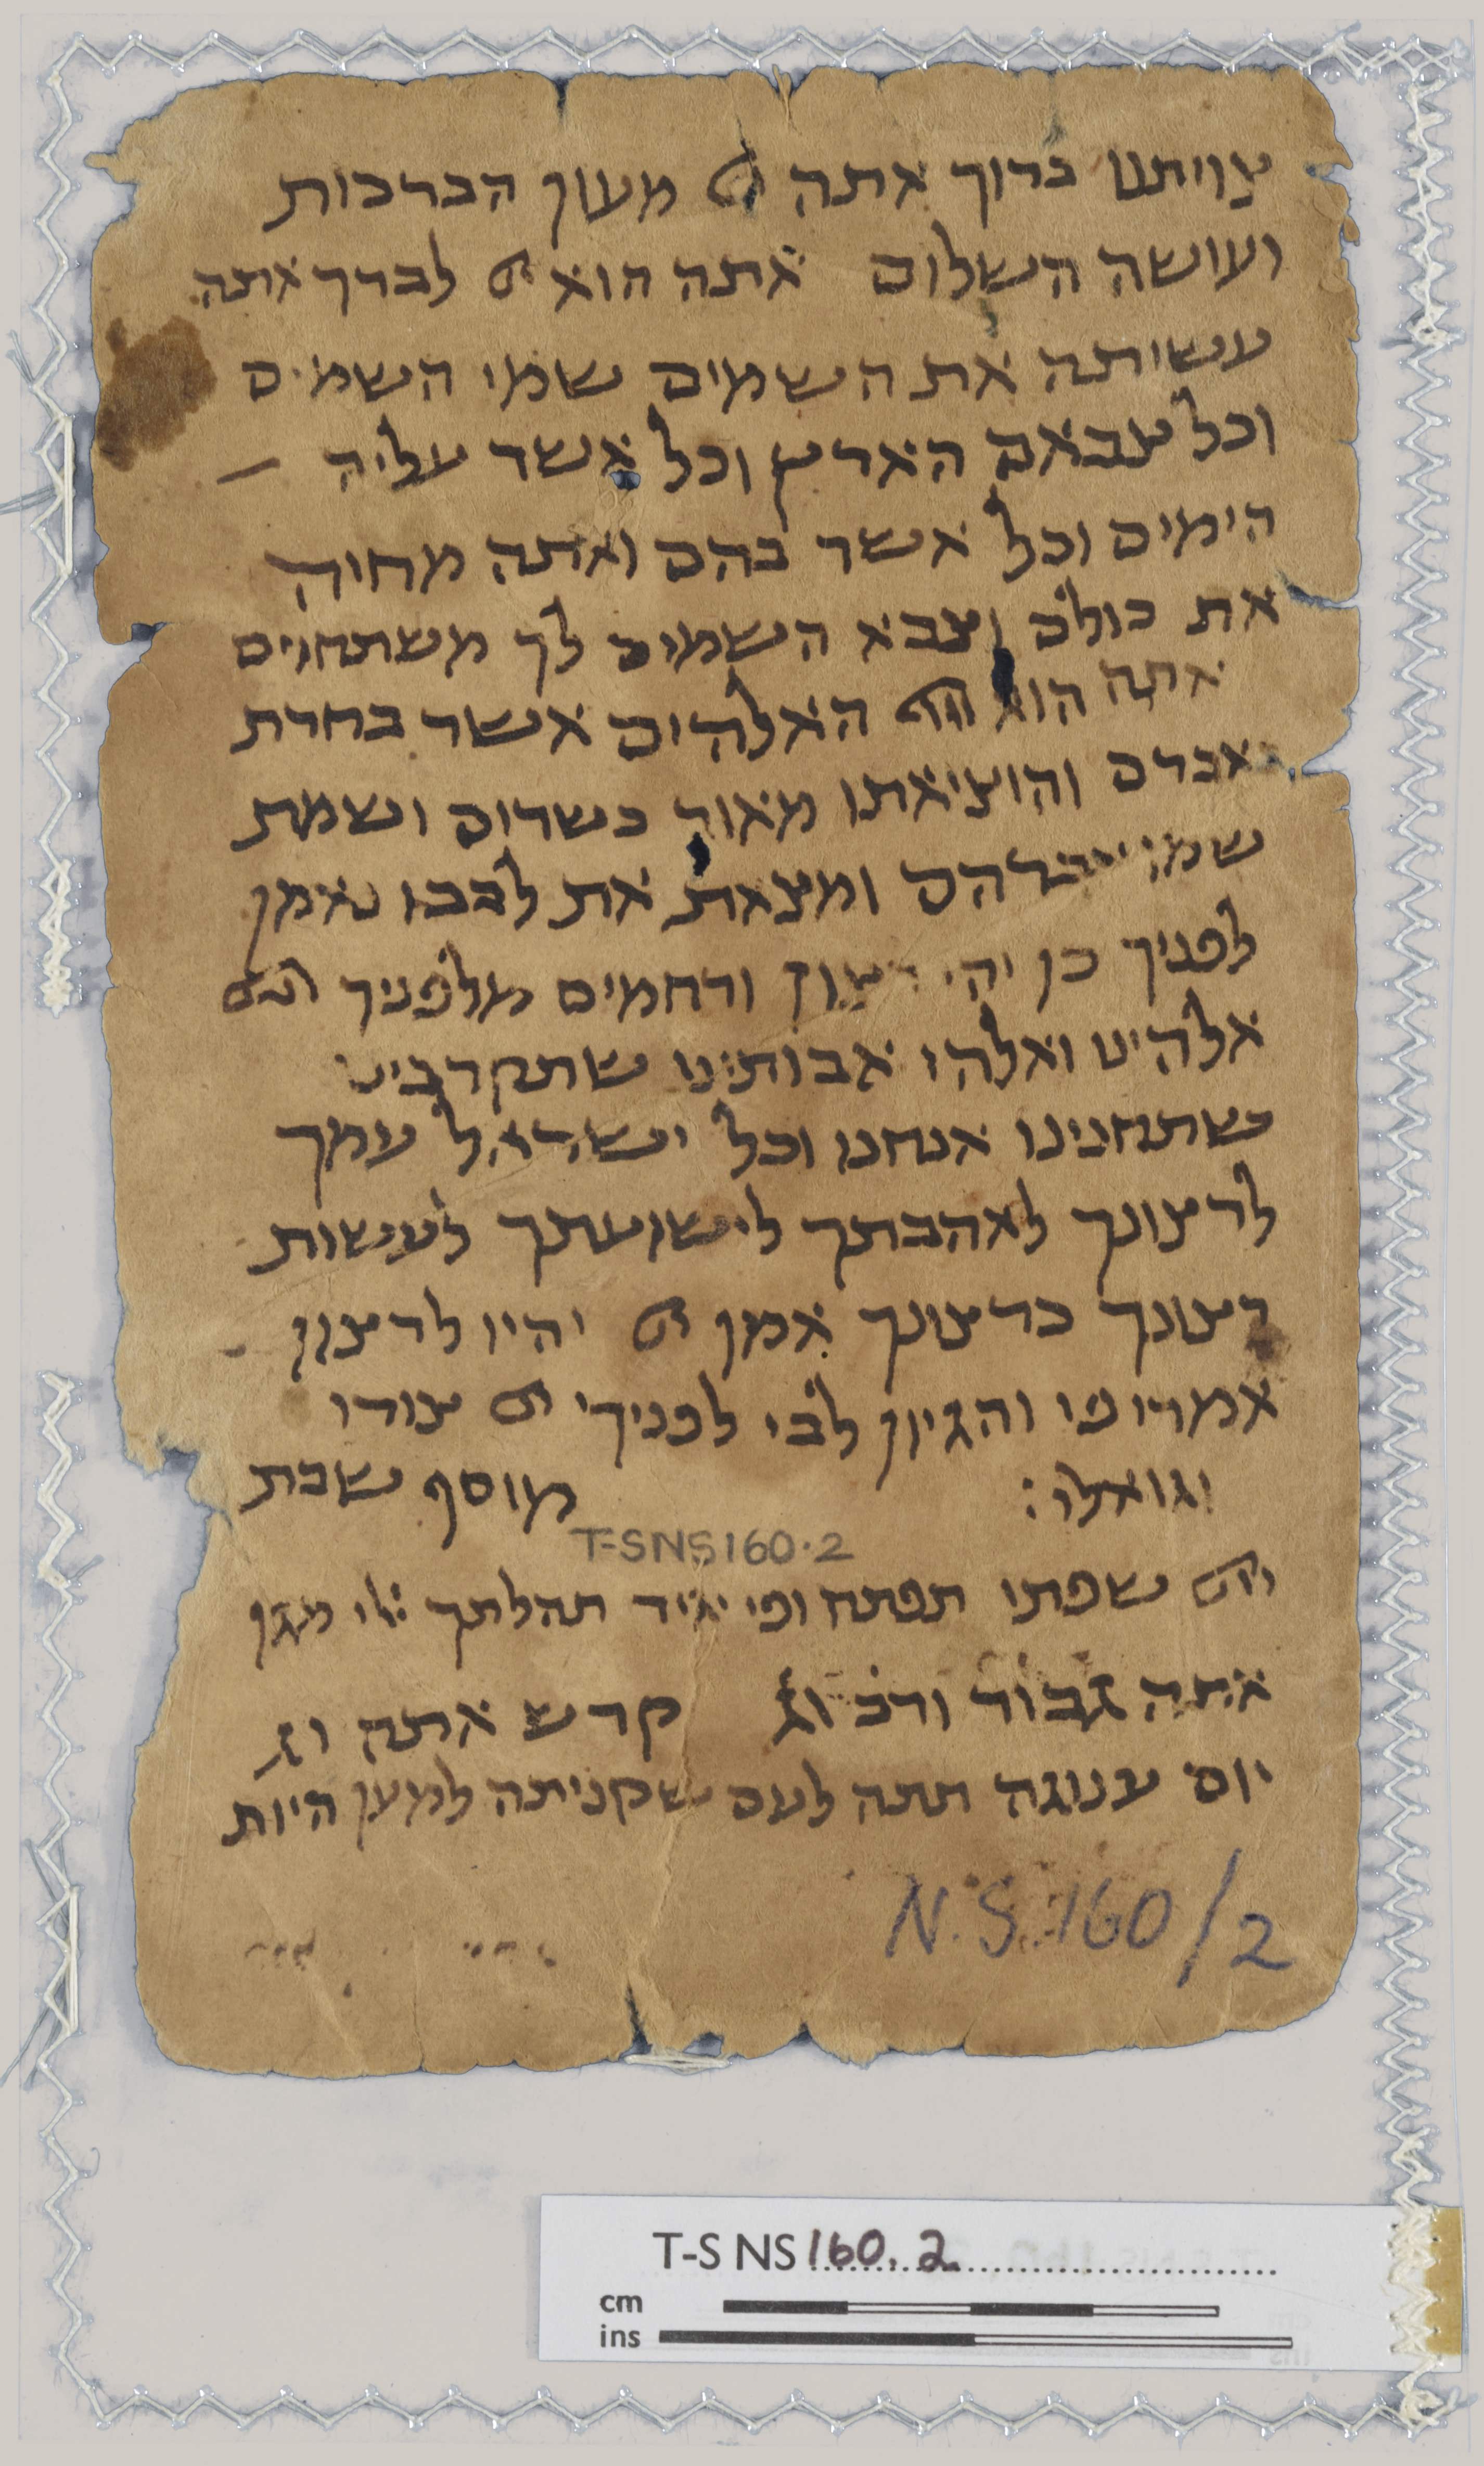 צויתנו ברוך אתה יי מעון הברכות
ועושה השלום אתה הוא יי לבדך אתה
עשיתה את השמים שמי השמים
וכל צבאם הארץ וכל אשר עליה
הימים וכל אשר בהם ואתה מחיה
את כולם וצבא השמים לך משתחוים
אתה הוא יי האלהים אשר בחרת
אברם והוציאתו מאור כשדים ושמת
שמו אברהם ומצאת את לבבו נאמן
לפניך כן יהי רצון ורחמים מלפניך יי
אלהינו ואלהי אבותינו שתקרבינו
כשתחנינו אנחנו וכל ישראל עמך
לרצונך לאהבתך לישועתך לעשות
רצונך כרצונך אמן יי יהיו לרצון
אמרי פי והגיון לבי לפניך יי צורי
וגואלי: מוסף שבת
T-SNS160.2
יי שפתי תפתח ופי יגיד תהלתך מגן
אתה גבור ורב וג קדש אתה וג
יום ענוגה תתה לעם שקניתה למען היות
N.S.160/2
T-S NS 160.2
cm
ins